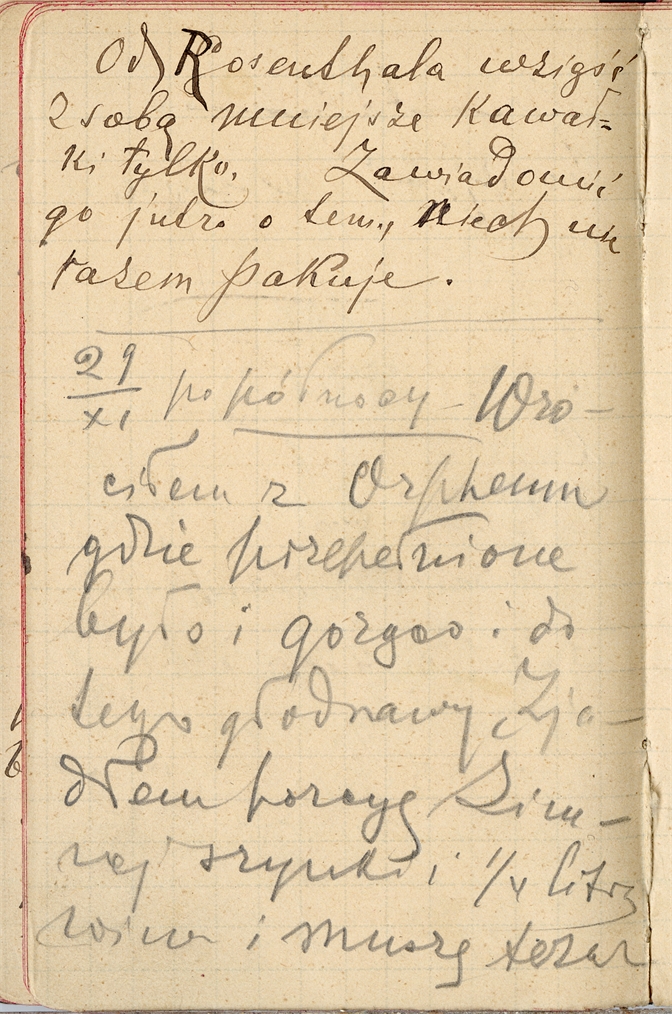 Od Rosenthala wziąść
z sobą mniejsze Kawał=
ki tylko. Zawiadomić
go jutro o tem, niech mi
razem pakuje.
29/XI po północy – Wró–
ciłem z Orpheum
gdzie przepełnione
było i gorąco i do
tego głodnawy Zja–
dłem porcyę Zim–
nej szynki i 1/4 litrz
wina i muszę teraz